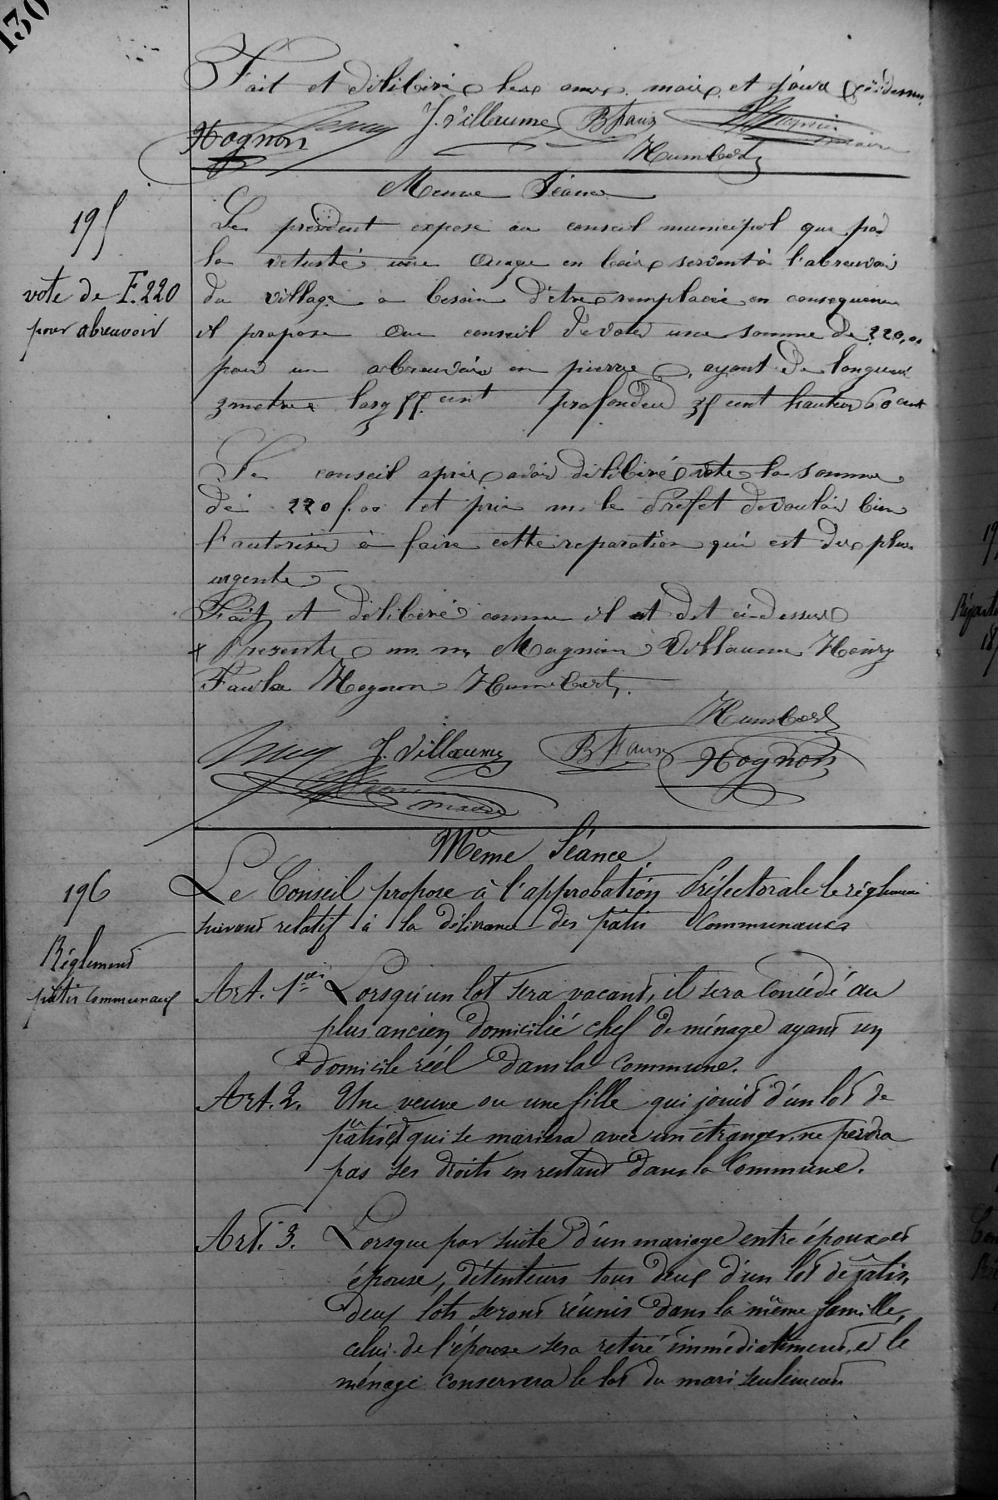 130
Fait et délibéré les ans, mois et jour ci-dessus
J. Villaume B Faux
Hognon maire
Humbert
Meme Séance
195
vote de F. 220
pour abreuvoir
Le président expose au conseil municipal que par
la vetusté une auge en bois servant à l'abreuvoir
du village a besoin d'être remplacée en consequence
il propose au conseil de voter une somme de 220,00
pour un abreuvoir en pierre ayant de longueur
3 metres larg 55 cent profondeur 35 cent hauteur 60 cent
Le conseil après avoir délibéré vote la somme
de 220 f. 00 et prie m. le Préfet de vouloir bien
l'autoriser à faire cette reparation qui est des plus
urgente
Fait et délibéré comme il est dit ci-dessus
Presents m.m. Magnien Villaume Henry
Faulx Hognon Humbert.
Humbert
J. Villaume B Faux Hognon
maire
Même Séance
196
Réglement
pâtis communaux
Le Conseil propose à l'approbation Préfectorale le réglement
suivant relatif à la délivrance des pâtis Communaux
Art. 1er Lorsqu'un lot sera vacant, il sera Concédé au
plus ancien domicilié chef de ménage ayant un
domicile réel dans la Commune.
Art. 2. Une veuve ou une fille qui jouit d'un lot de
pâtis et qui se mariera avec un étranger, ne perdra
pas ses droits en restant dans la Commune.
Art. 3. Lorsque par suite d'un mariage entre époux et
épouse, détenteurs tous deux d'un lot de pâtis,
deux lots seront réunis dans la même famille,
celui de l'épouse sera retiré immédiatement, et le
ménage conservera le lot du mari seulement